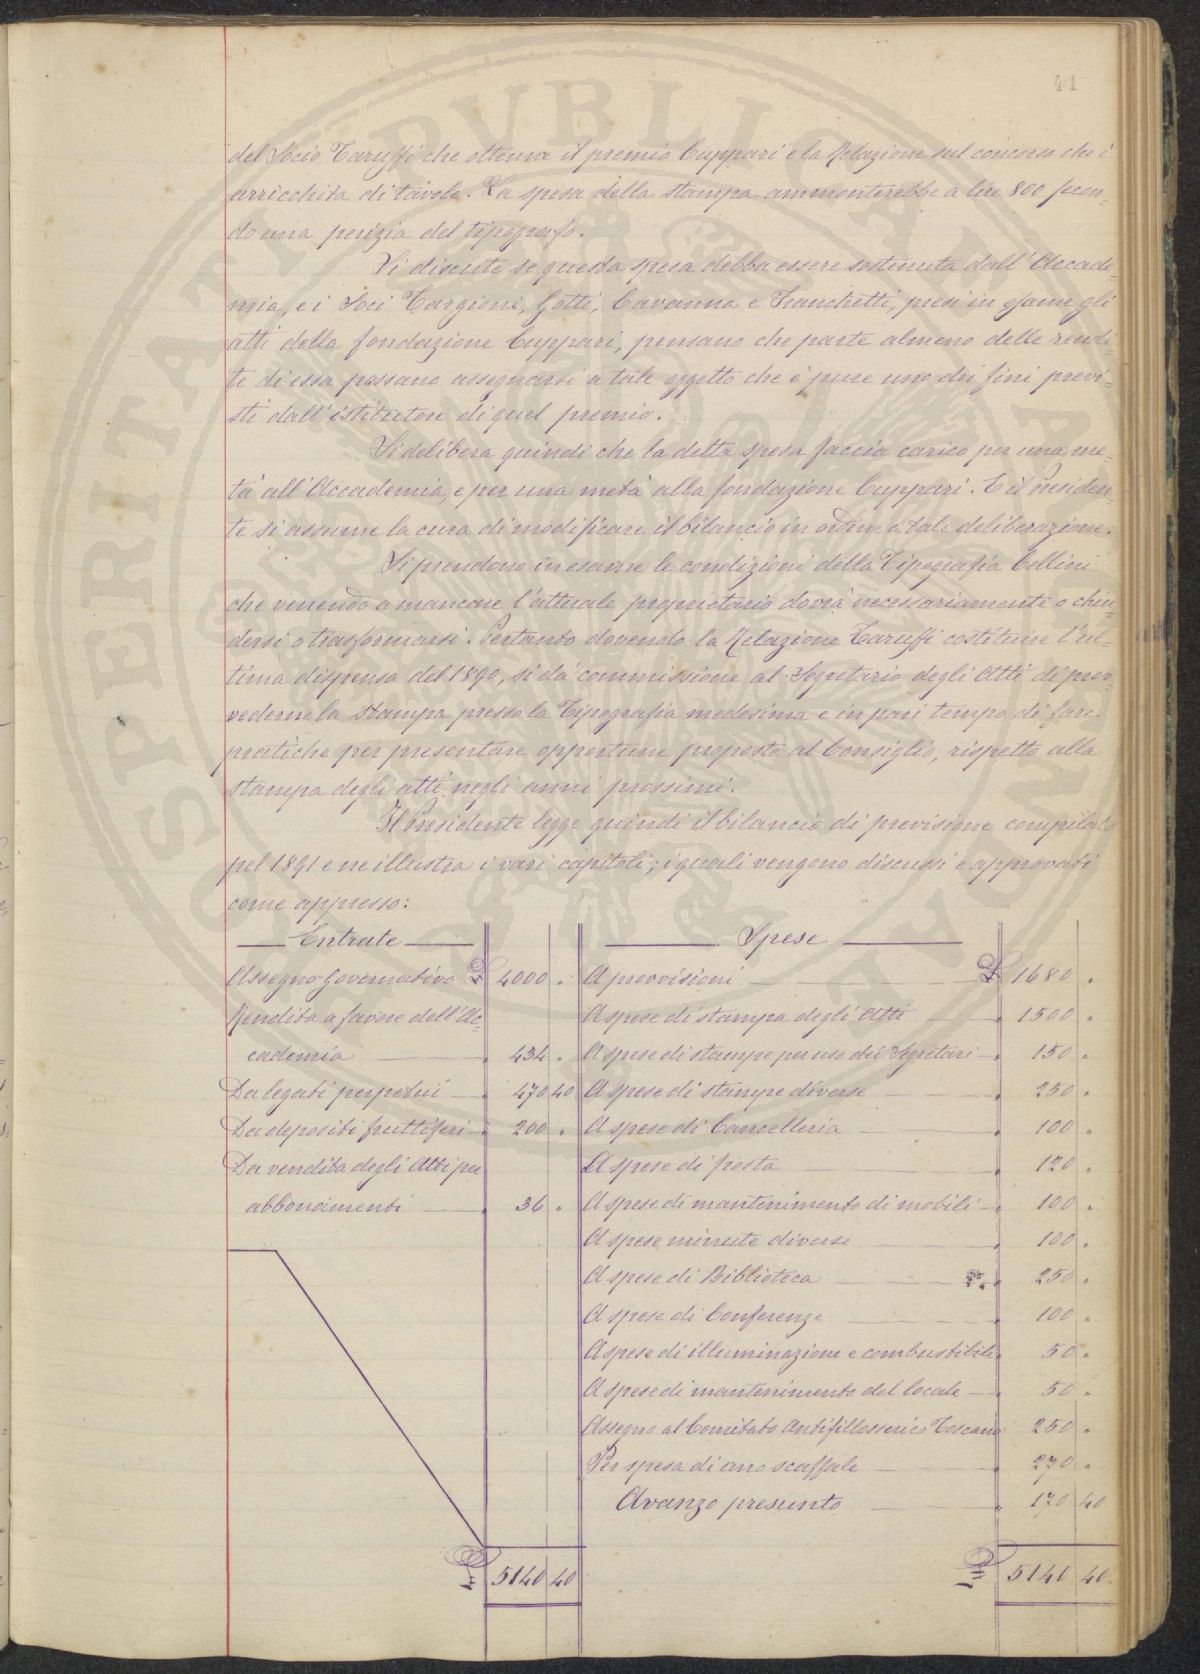 41
del Socio Taruffi che ottenne il premio Cuppari e la Relazione sul concorso che è
arricchita di tavole. La spesa della stampa ammonterebbe a lire 800 secon-
do una perizia del tipografo.
Si discute se questa spesa debba essere sostenuta dall'Accade-
mia, e i Soci Targioni, Gotti, Cavanna e Franchetti, presi in esame gli
atti della fondazione Cuppari, pensano che parte almeno delle rendi-
te di essa possano assegnarsi a tale oggetto che è pure uno dei fini previ-
sti dall'istitutore di quel premio.
Si delibera quindi che la detta spesa faccia carico per una me-
tà all'Accademia, e per una metà alla fondazione Cuppari. E il Presiden-
te si assume la cura di modificare il bilancio in ordine a tale deliberazione.
Si prendono in esame le condizioni della Tipografia Cellini
che venendo a mancare l'attuale proprietario dovrà necessariamente o chiu-
dersi o trasformarsi. Pertanto dovendo la Relazione Taruffi costituire l'ul-
tima dispensa del 1890, si dà commissione al Segretario degli Atti di prov-
vederne la stampa presso la Tipografia medesima e in pari tempo di fare
pratiche per presentare opportune proposte al Consiglio, rispetto alla
stampa degli atti negli anni prossimi.
Il Presidente legge quindi il bilancio di previsione compilato
pel 1891 e ne illustra i vari capitoli; i quali vengono discussi e approvati
come appresso:
Entrate
Assegno Governativo £ 4000 "
Rendita a favore dell'Ac-
cademia " 434 "
Da legati perpetui " 470 40
Da depositi fruttiferi " 200 "
Da vendita degli Atti per
abbonamenti " 36 "
£ 5140 40
Spese
A provvisioni £ 1680 "
A spese di stampa degli Atti " 1500 "
A spese di stampe per uso dei Segretari " 150 "
A spese di stampe diverse " 250 "
A spese di Cancelleria " 100 "
A spese di posta " 120 "
A spese di mantenimento di mobili " 100 "
A spese minute diverse " 100 "
A spese di Biblioteca " 250 "
A spese di Conferenze " 100 "
A spese di illuminazione e combustibile " 50 "
A spese di mantenimento del locale " 50 "
Assegno al Comitato Antifillosserico Toscano 250 "
Per spesa di uno scaffale " 270 "
Avanzo presunto " 170 40
£ 5140 40